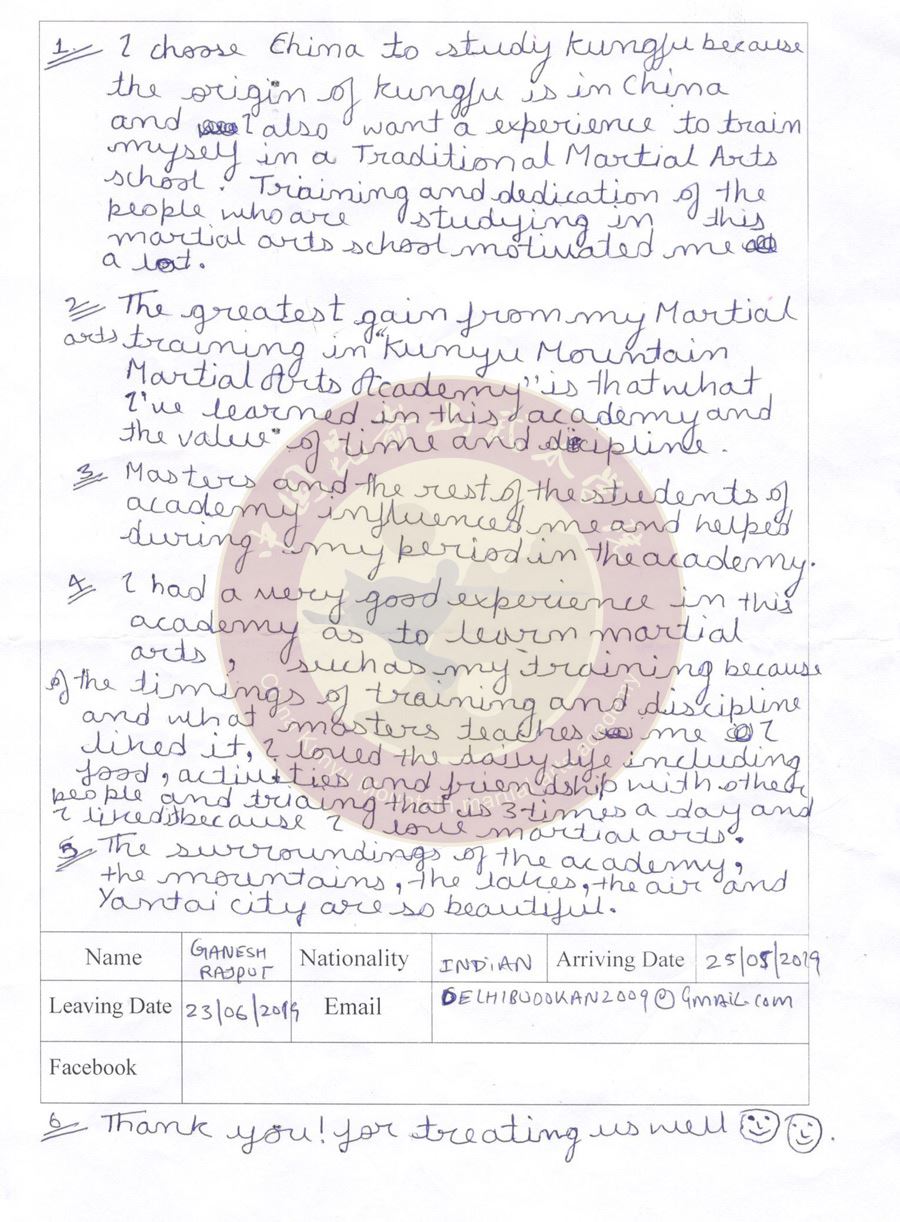 1. I choose China to study kungfu because
the origin of kungfu is in China
and I also want a experience to train
myself in a Traditional Martial Arts
school. Training and dedication of the
people who are studying in this
martial arts school motivated me
a lot.
2. The greatest gain from my Martial
arts training in "Kunyu Mountain
Martial Arts Academy" is that what
I've learned in this academy and
the value of time and dicipline.
3. Masters and the rest of the students of
academy influenced me and helped
during my period in the academy.
4. I had a very good experience in this
academy as to learn martial
arts, such as my training because
of the timings of training and discipline
and what masters teaches me I
liked it, I loved the daily life including
food, activities and friendship with other
people and triaing that is 3 times a day and
I liked it because I love martial arts.
5. The surroundings of the academy,
the mountains, the lakes, the air and
Yantai city are so beautiful.
China Kunyu Mountain martial arts academy
Name GANESH RAJPUT Nationality INDIAN Arriving Date 25/05/2019
Leaving Date 23/06/2019 Email DELHIBUDOKAN2009@gmail.com
Facebook
6. Thank you! for treating us well